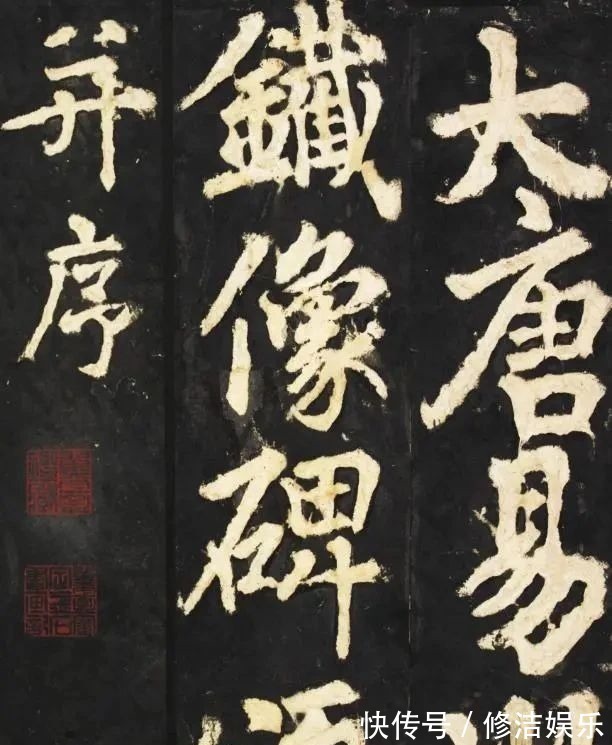 大唐易
鐵像碑
并序
快传号 / 修洁娱乐